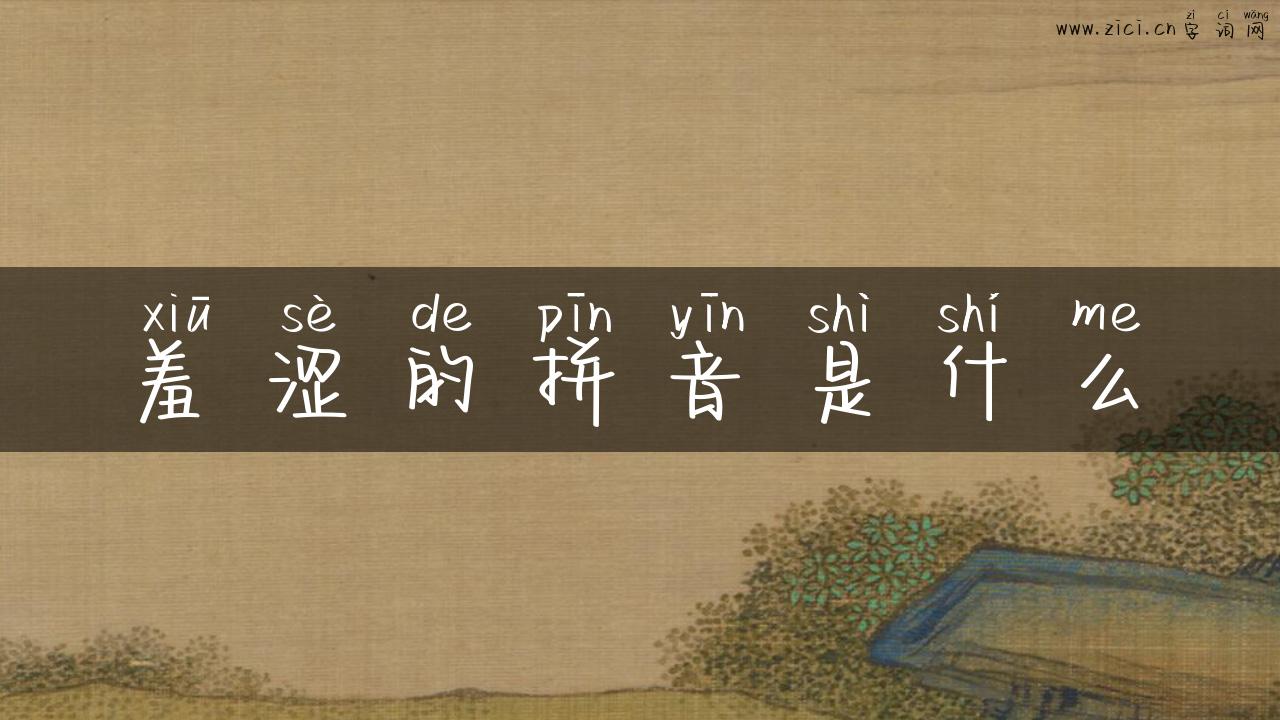 zì cí wǎng
www.zici.cn 字 词 网
xiū sè de pīn yīn shì shí me
羞 涩 的 拼 音 是 什 么